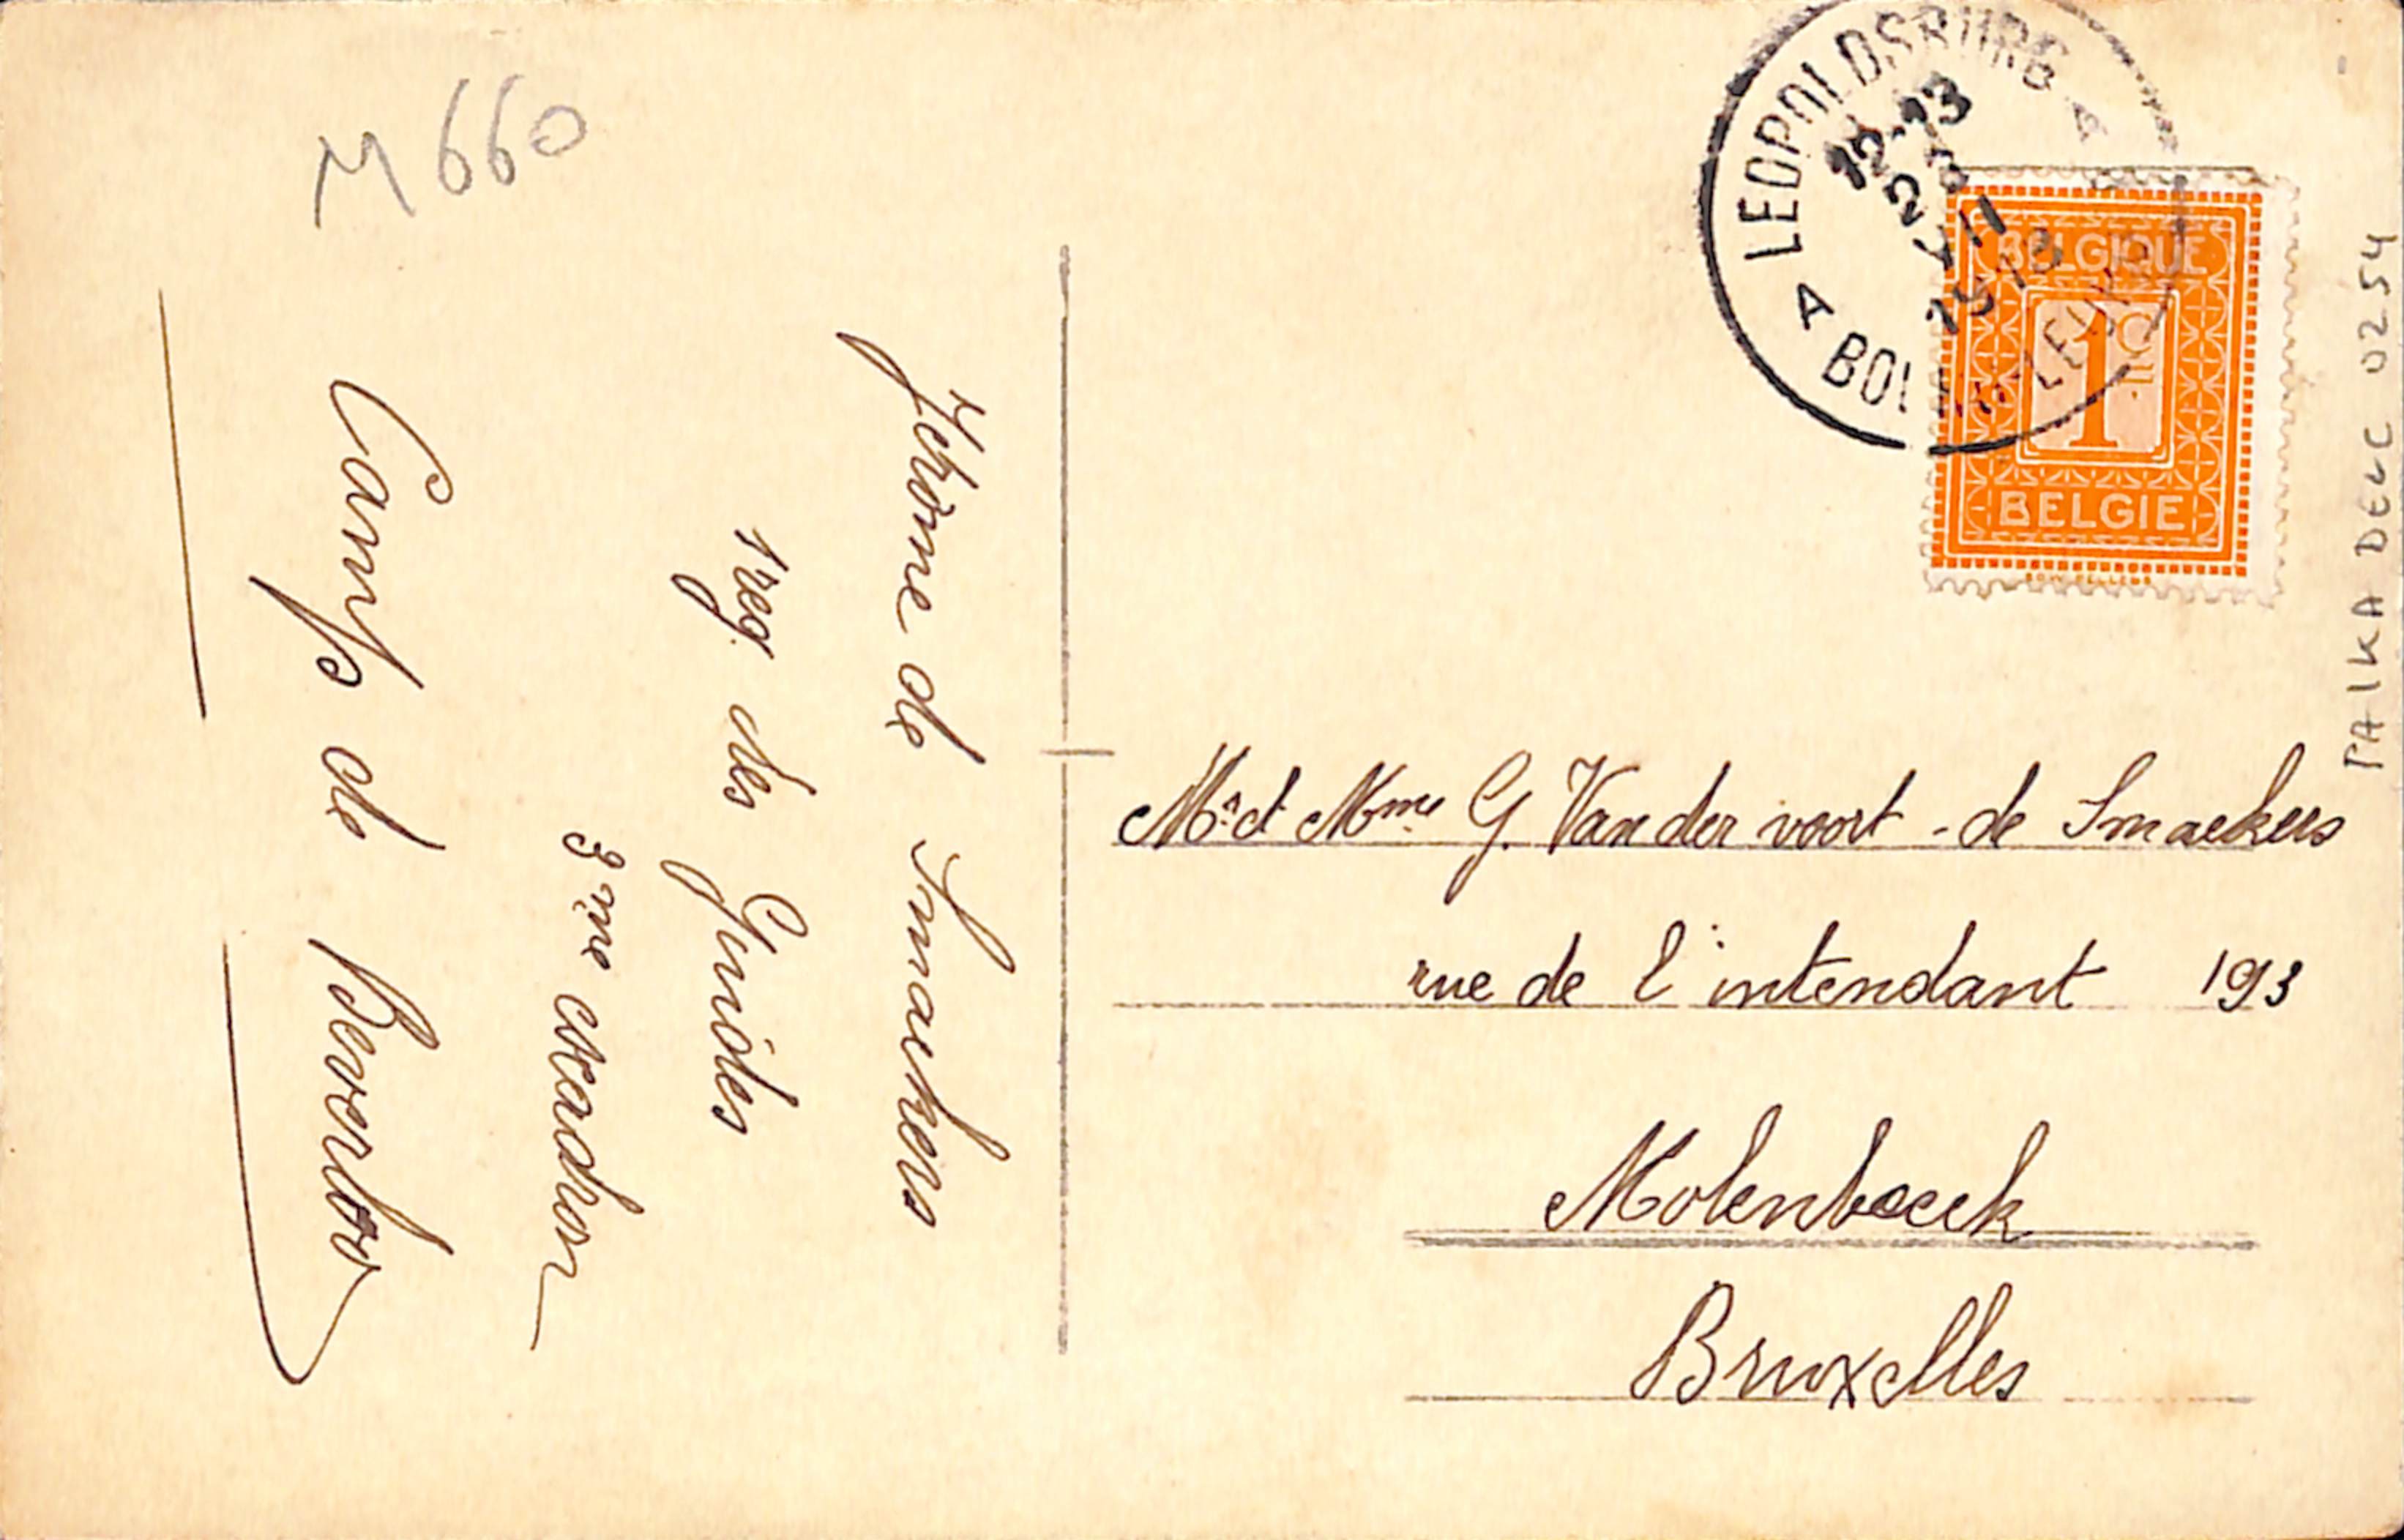 M 660
Jérôme de Smaekers
1 reg des Guides
3me escadron
Camp de Beverloo
LEOPOLDSBURG
A A
12-13
1913
BELGIQUE
1c
BELGIE
PAIKA DELC 0254
Mr et Mme G. Vandervoort - de Smaekers
rue de l'intendant 193
Molenbeeck
Bruxelles